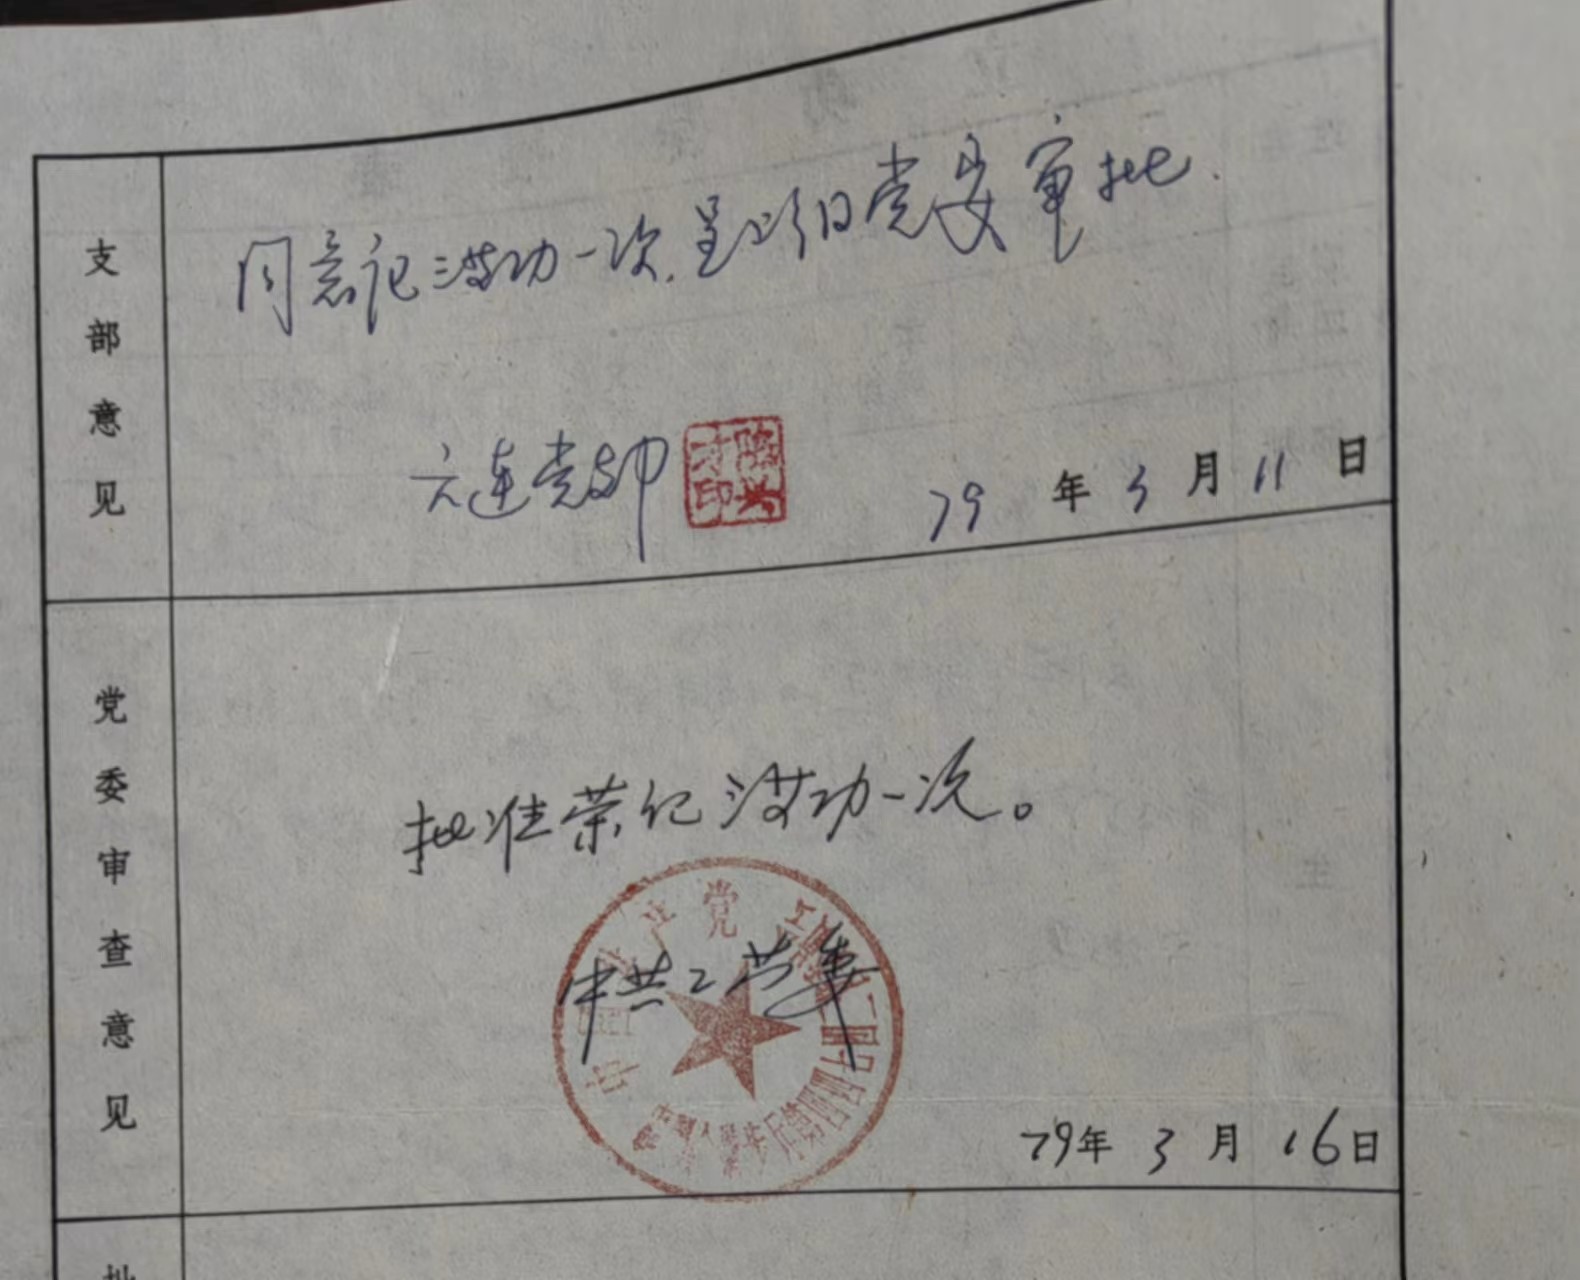 支部意见
同意记三等功一次,呈上级党委审批.
六连党支部
79年3月11日
党委审查意见
批准荣记三等功一次。
中共
79年3月16日